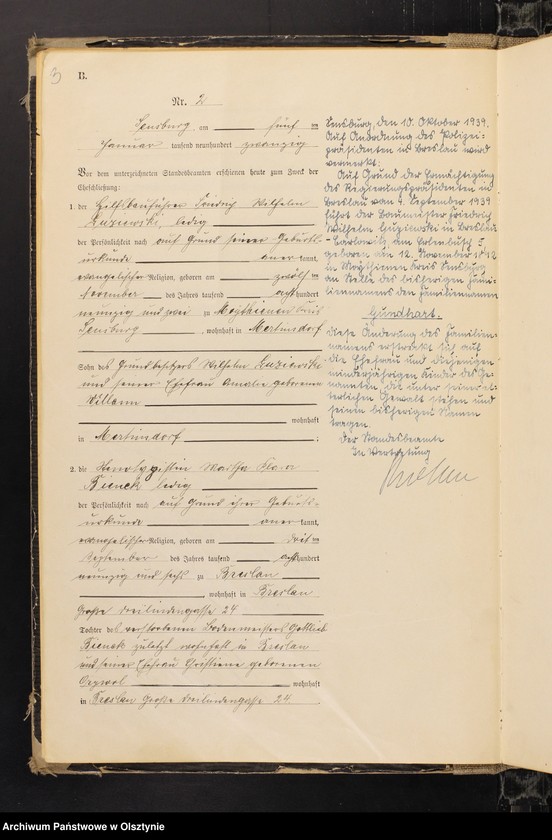 3
B.
Nr. 2
Sensburg, am fünf ten
Januar tausend neunhundert zwanzig
Vor dem unterzeichneten Standesbeamten erschienen heute zum Zweck der
Eheschließung:
1. der Friedrich Wilhelm
ledig
der Persönlichkeit nach auf Grund seiner Geburts-
urkunde anerkannt,
evangelischer Religion, geboren am zwölften
November des Jahres tausend achthundert
neunzig und zwei zu Kreis
Sensburg, wohnhaft in Mertinsdorf
Sohn des Grundbesitzers Wilhelm
und seiner Ehefrau Amalie geborenen
wohnhaft
in Mertinsdorf;
2. die Stenotypistin Martha
Bienek ledig
der Persönlichkeit nach auf Grund ihrer Geburts-
urkunde anerkannt,
evangelischer Religion, geboren am dritten
September des Jahres tausend achthundert
neunzig und sechs zu Breslau
, wohnhaft in Breslau
Große Dreilindengasse 24
Tochter des verstorbenen Bodenmeisters Gottlieb
Bienek zuletzt wohnhaft in Breslau
und seiner Ehefrau Christiane geborenen
wohnhaft
in Breslau Große Dreilindengasse 24.
Sensburg, den 10. Oktober 1939.
Auf Anordnung des Polizei-
präsidenten in Breslau wird
vermerkt:
Auf Grund der Ermächtigung
des Regierungspräsidenten in
Breslau vom 4. September 1939
führt der Baumeister Friedrich
Wilhelm in Breslau
-Carlowitz, am Erlenbusch 5,
geboren am 12. November 1892
in Kreis Sensburg
an Stelle des bisherigen Fami-
liennamens den Familiennamen
Gundhart.
Diese Änderung des Familien-
namens erstreckt sich auf
die Ehefrau und diejenigen
minderjährigen Kinder des Ge-
nannten, die unter seiner el-
terlichen Gewalt stehen und
seinen bisherigen Namen
tragen.
Der Standesbeamte
In Vertretung
Archiwum Państwowe w Olsztynie